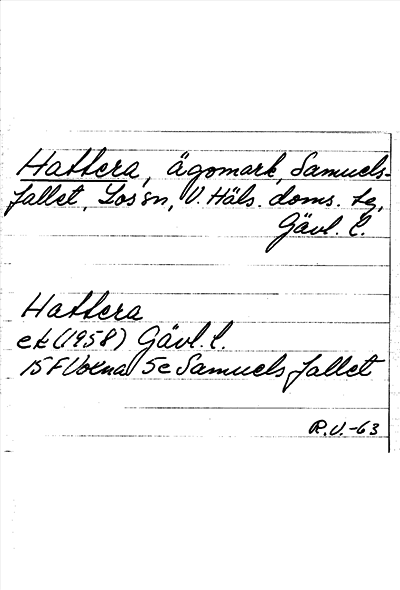 Hattera, ägomark, Samuels-
fallet, Los sn, V. Häls. doms. tg,
Gävl. l.
Hattera
ek (1958) Gävl. l.
15 F Voxna 5c Samuelsfallet
R.V.-63